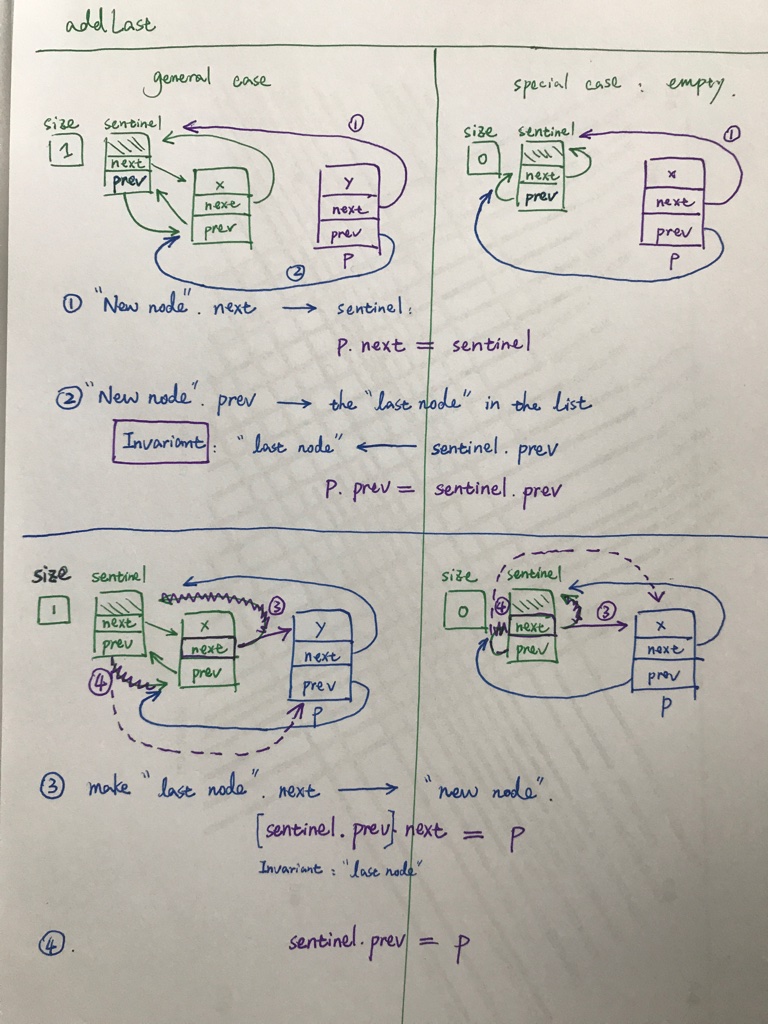 addLast
general case
special case : empty.
size
sentinel
1
next
prev
x
next
prev
y
next
prev
P
①
②
size
sentinel
0
next
prev
x
next
prev
P
①
① "New node". next → sentinel:
P. next = sentinel
② "New node". prev → the "last node" in the list
Invariant : "last node" ← sentinel. prev
P. prev = sentinel. prev
size
sentinel
1
next
prev
x
next
prev
y
next
prev
P
③
④
size
sentinel
0
next
prev
x
next
prev
P
③
④
③ make "last node". next → "new node".
[sentinel. prev]. next = P
Invariant : "last node"
④. sentinel. prev = P